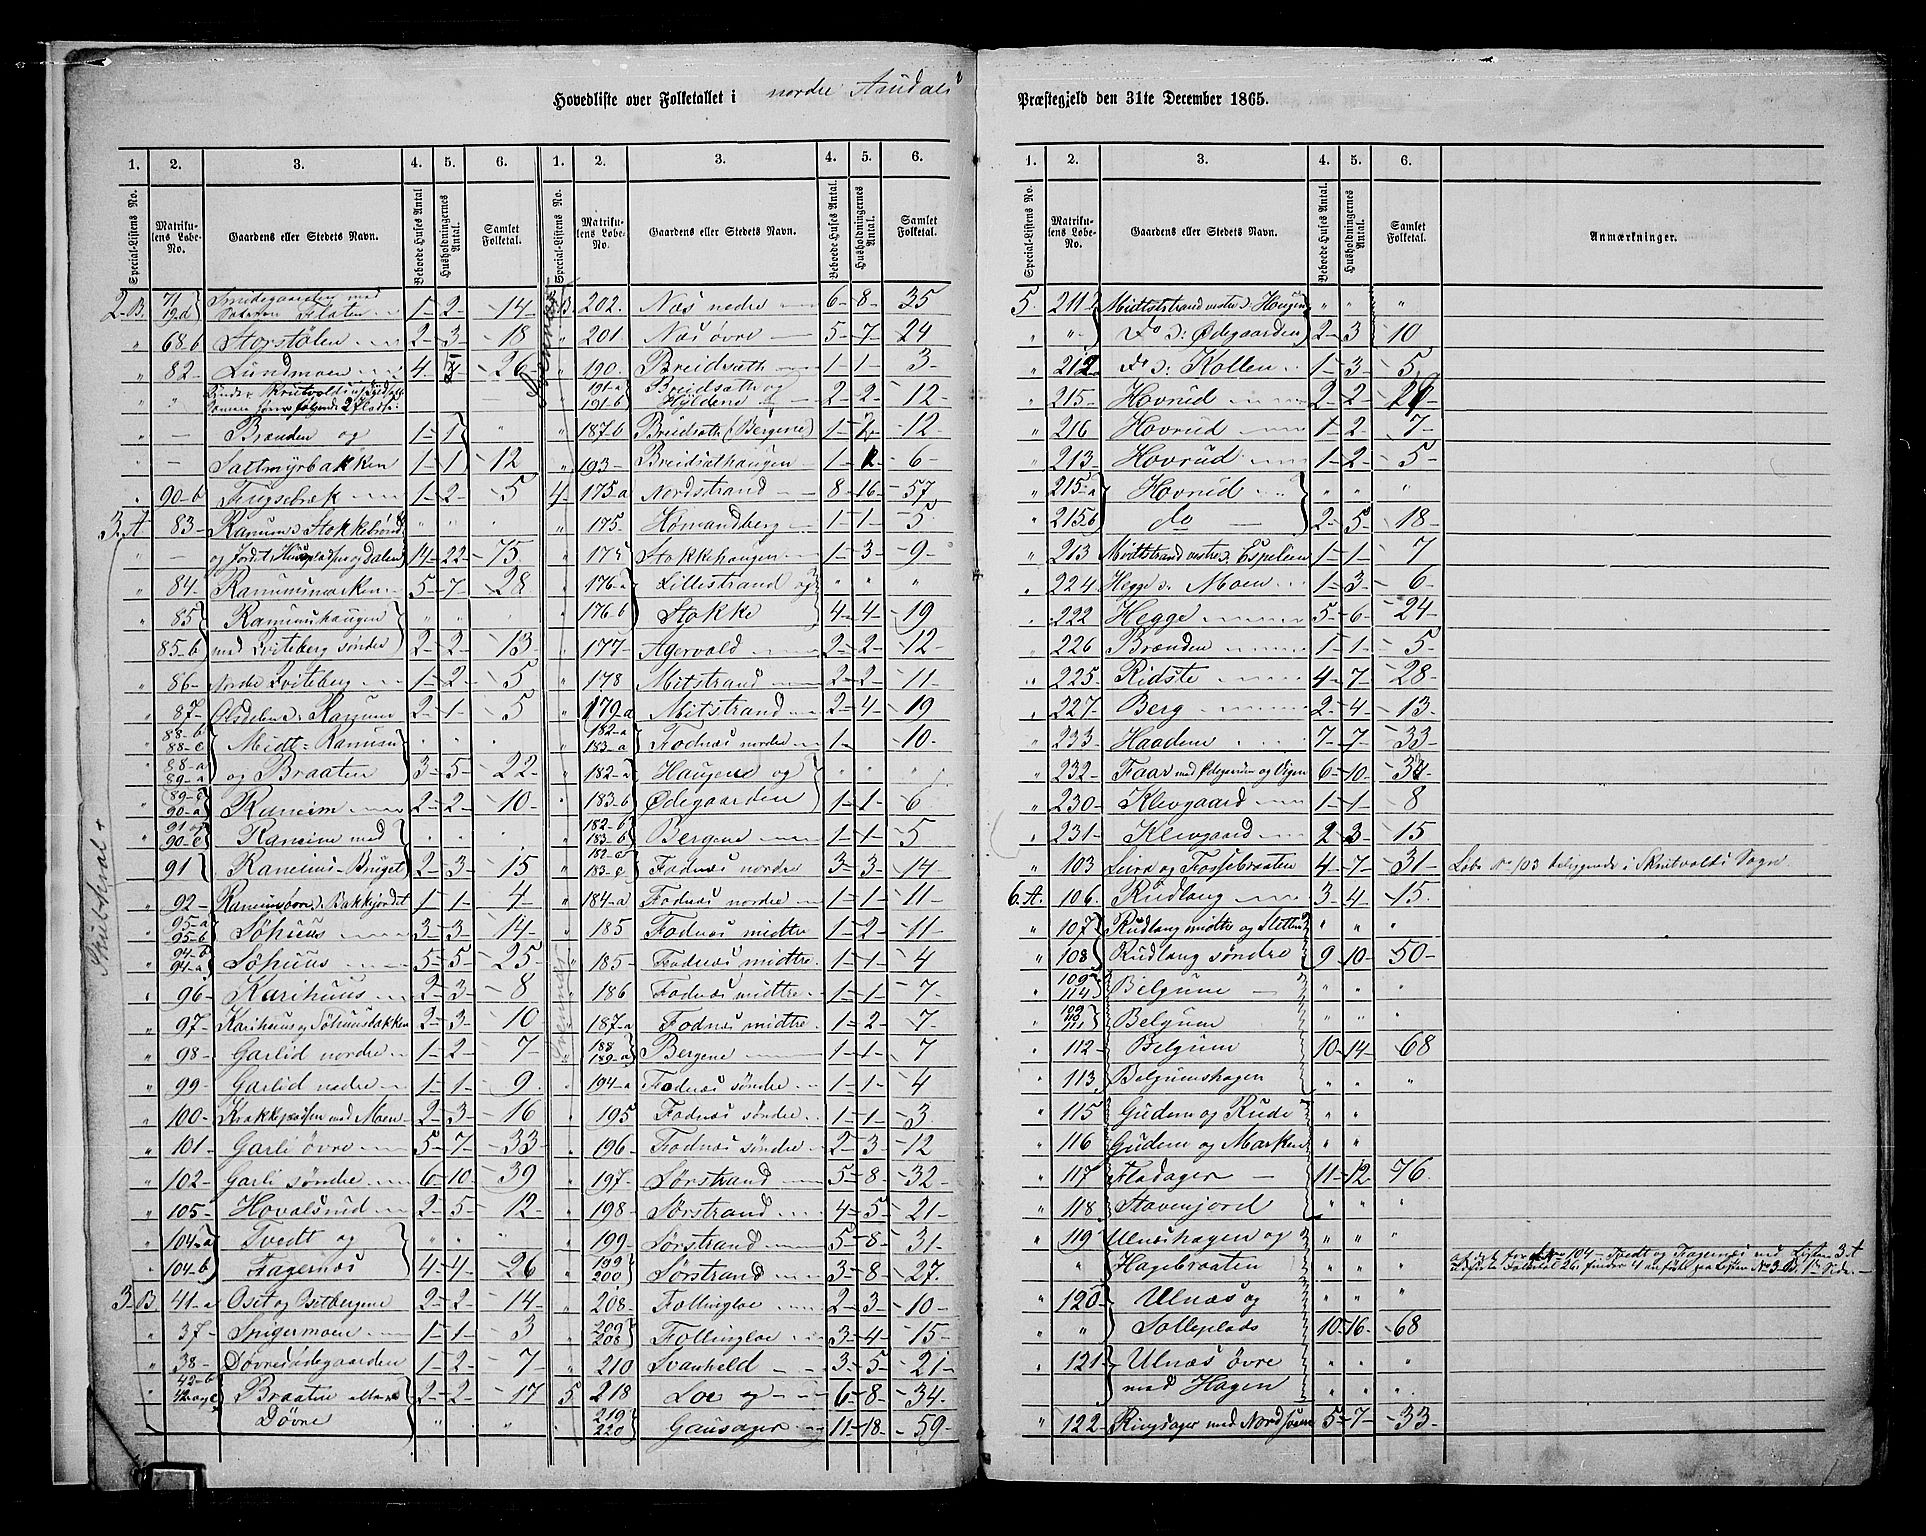 Hovedliste over Folketallet i nordre Aurdals Præstegjeld den 31te December 1865.
1. 2. 3. 4. 5. 6. 1. 2. 3. 4. 5. 6.
Special-Listens No. Matrikulens Løbe-No. Gaardens eller Stedets Navn. Beboede Huses Antal Husholdningernes Antal. Samlet Folketal. Special-Listens No. Matrikulens Løbe-No. Gaardens eller Stedets Navn. Beboede Huses Antal. Husholdningernes Antal. Samlet Folketal.
2-B 71 72d Smedegaarden med Flaten 1 - 2 - 14
" 68-b Storstølen 2 - 3 - 18
" 82 Lundmoen 4 - 26
" "
" — Brænden og 1 - 1 "
" — Sattmyrbakken 1 - 1 12
" 90-b Tingsebæk 1 - 2 - 5
3. A 83 Ranum : Stokkebrænd " " "
" — 14 - 22 - 75
" 84 Ranumsmarken 5 - 7 - 28
" 85 Ranumshaugen " " "
85-b med Qviteberg søndre 2 - 2 - 13
" 86 Nordre Qviteberg 1 - 2 - 5
" 87 Ranum 2 - 1 - 5
" 88-b 88-c Midt-Ranum " " "
" 88-a 89-a og Braaten 3 - 5 - 22
" 89-c 90-a Raneim 2 - 2 - 10
" 91 og 90-c Raneim med " " "
91 Raneims-Briget 2 - 3 - 15
" 92 Raneim øvre : Bakkjordet 1 - 1 - 4
" 95-a 95-b Søhuus 3 - 3 - 14
" 94-b 94-a Søhuus 5 - 5 - 25
" 96 Karihuus 2 - 3 - 8
" 97 Karihuus og Søhuusbakken 2 - 3 - 10
" 98 Garlid nordre 1 - 2 - 7
" 99 Garlid nedre 1 - 1 - 9
" 100 med Moen 2 - 3 - 16
" 101 Garli øvre 5 - 7 - 33
" 102 Garli søndre 6 - 10 - 39
" 105 Hovalsrud 2 - 5 - 12
" 104-a Tvedt og " " "
" 104-b Fagernæs 4 - 4 - 26
3-B 41-a Oset og Osetbergene 2 - 2 - 14
" 37 Spigermoen 1 - 1 - 3
" 38 Døvresødegaarden 1 - 2 - 7
" 42-b Braaten eller 2 - 2 - 17
Døvre " " "
Skrutvol +
B 202 Næs nedre 6 - 8 - 35
" 201 Næs øvre 5 - 7 - 24
" 190 Breidsath 1 - 1 - 3
" 191-a 191-b Breidsath og Hjeldene 2 - 2 - 12
" 187-b Breidsath (Bergene) 1 - 2 - 12
" 193 Breidsathaugen 1 - 6
4 175-a Nordstrand 8 - 16 - 57
" 175 Homandberg 1 - 1 - 5
" 175 Stokkehaugen 1 - 3 - 9
" 176-a Lillestrand og " " "
" 176-b Stokke 4 - 4 - 19
" 177 Agervold 2 - 2 - 12
" 178 Mitstrand 2 - 2 - 11
" 179-a Mitstrand 2 - 4 - 19
" 182-a 183-a Fodnæs nordre 1 - 10
" 182-a Haugene og " " "
" 183-b Ødegaarden 1 - 1 - 6
" 182-b 183-b Bergene 1 - 1 - 5
" 182-c 183-c Fodnæs nordre 3 - 3 - 14
" 184-a Fodnæs nordre 1 - 1 - 11
" 185 Fodnæs midtre 1 - 2 - 11
" 185 Fodnæs midtre 1 - 1 - 4
" 186 Fodnæs midtre 1 - 1 - 7
" 187-a Fodnæs midtre 1 - 2 - 7
" 188 189-a Bergene 1 - 1 - 7
" 194-a Fodnæs søndre 1 - 1 - 4
" 195 Fodnæs søndre 1 - 1 - 3
" 196 Fodnæs søndre 2 - 3 - 12
" 197 Sørstrand 5 - 8 - 32
" 198 Sørstrand 4 - 5 - 21
" 199 Sørstrand 5 - 8 - 31
" 199 200 Sørstrand 3 - 8 - 27
" 208 Follingloe 2 - 3 - 10
" 209 208 Follingloe 3 - 4 - 15
" 210 Svanheld 3 - 5 - 21
5 218 Loe og 6 - 8 - 34
" 219 220 Gausager 11 - 18 - 59
Svennæs
1. 2. 3. 4. 5. 6.
Special-Listens No. Matrikulens Løbe-No. Gaardens eller Stedets Navn. Beboede Huses Antal. Husholdningernes Antal. Samlet Folketal. Anmærkninger.
5 211 Midtstrand vestre : Haugen " " "
" " Do : Ødegaarden 2 - 3 - 10
" 212 Do : Kollen 1 - 3 - 5
" 215 Hovrud 2 - 2
" 216 Hovrud 1 - 2 - 7
" 213 Hovrud 1 - 2 - 5
" 215-a Hovrud " " "
" 215b do 2 - 5 - 18
" 213 Midtstrand vestre : Espelien 1 - 1 - 7
" 224 Hegge : Moen 1 - 3 - 6
" 222 Hegge 5 - 6 - 24
" 226 Brænden 1 - 1 - 5
" 225 Ridste 4 - 7 - 28
" 227 Berg 2 - 4 - 13
" 233 Haadem 7 - 7 - 33
" 232 Faar med Ødegaarden og 6 - 10
" 230 Klevgaard 1 - 1 - 8
" 231 Klevgaard 2 - 3 - 15
" 103 Leira og Fossebraaten 4 - 7 - 31 Løbe No 103 beliggende i Skrutvolds Sogn
6. A. 106 Rudlang 3 - 4 - 15
" 107 Rudlang midtre og Sletten " " "
" 108 Rudlang søndre 9 - 10 - 50
" 109 114 Belgum " " "
" Belgum " " "
" 112 Belgum 10 - 14 - 68
" 113 Belgumshagen " " "
" 115 Gudem og Rude " "
" 116 Gudem og Marken " "
" 117 Fladager 11 - 12 - 76
" 118 Stavenjord " " "
" 119 Ulnæshagen og " " "
" Hagebraaten " " "
" 120 Ulnæs og " " "
" " Solleplads 10 - 16 - 68
" 121 Ulnæs øvre " " "
med Hagen " " "
" 122 Ringsager med 5 - 7 - 33
af det for L.No 104 - Tvedt og Fagernæs med Listen 3-A